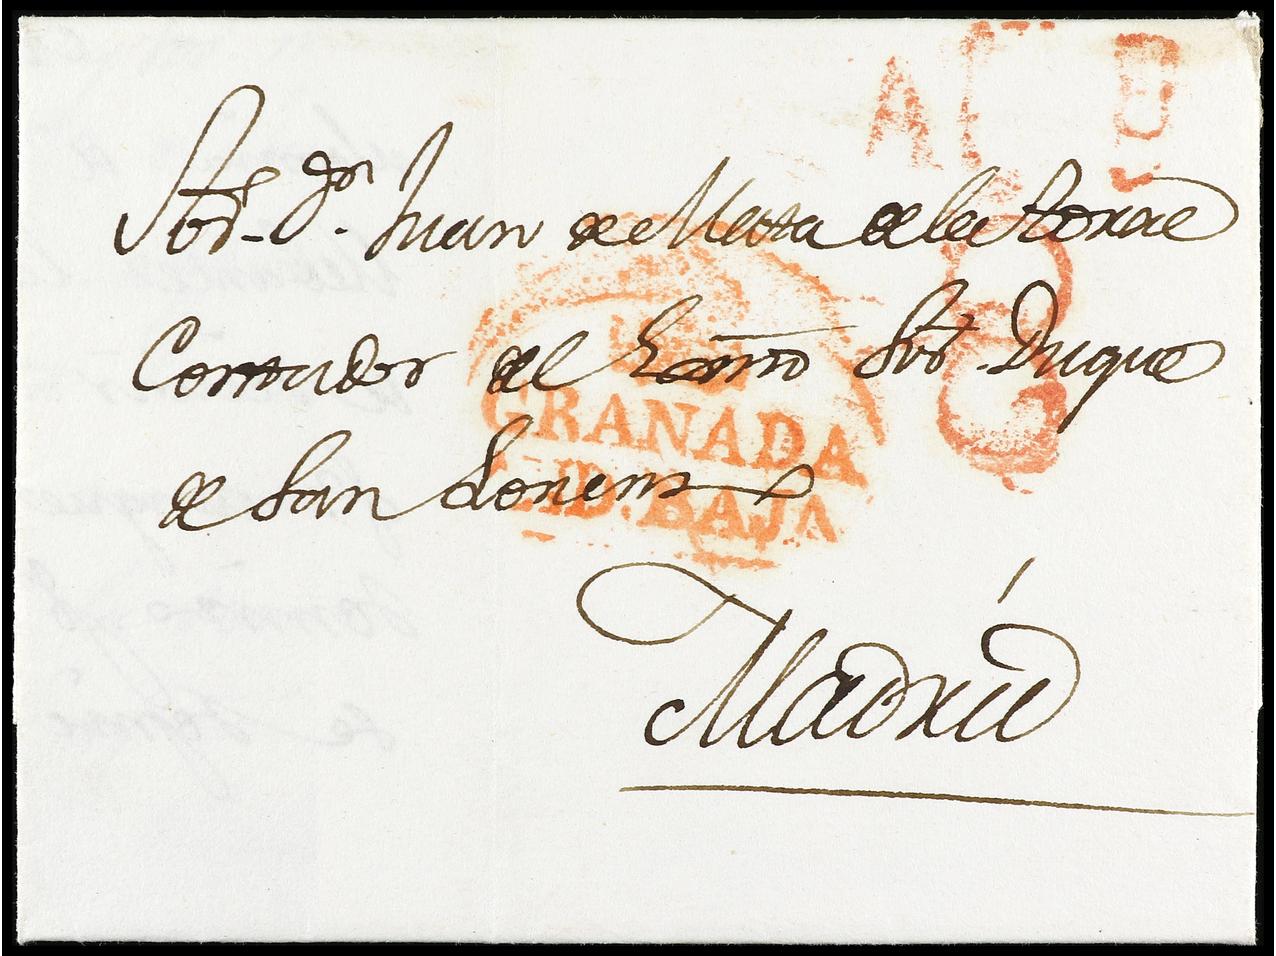 Sor. Dn. Juan de Mata de la Torre
Contador del Exmo Sor. Duque
de San Lorenzo
Madrid
GRANADA
AND. BAJA
8